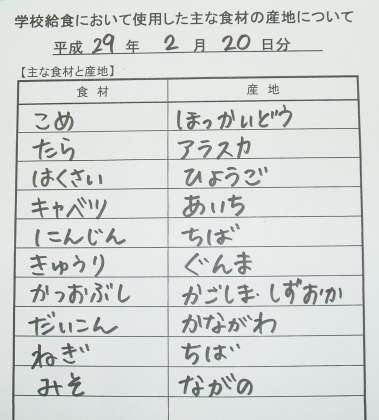 学校給食において使用した主な食材の産地について
平成 29 年 2 月 20 日分
【主な食材と産地】
食材 産地
こめ ほっかいどう
たら アラスカ
はくさい ひょうご
キャベツ あいち
にんじん ちば
きゅうり ぐんま
かつおぶし かごしま・しずおか
だいこん かながわ
ねぎ ちば
みそ ながの